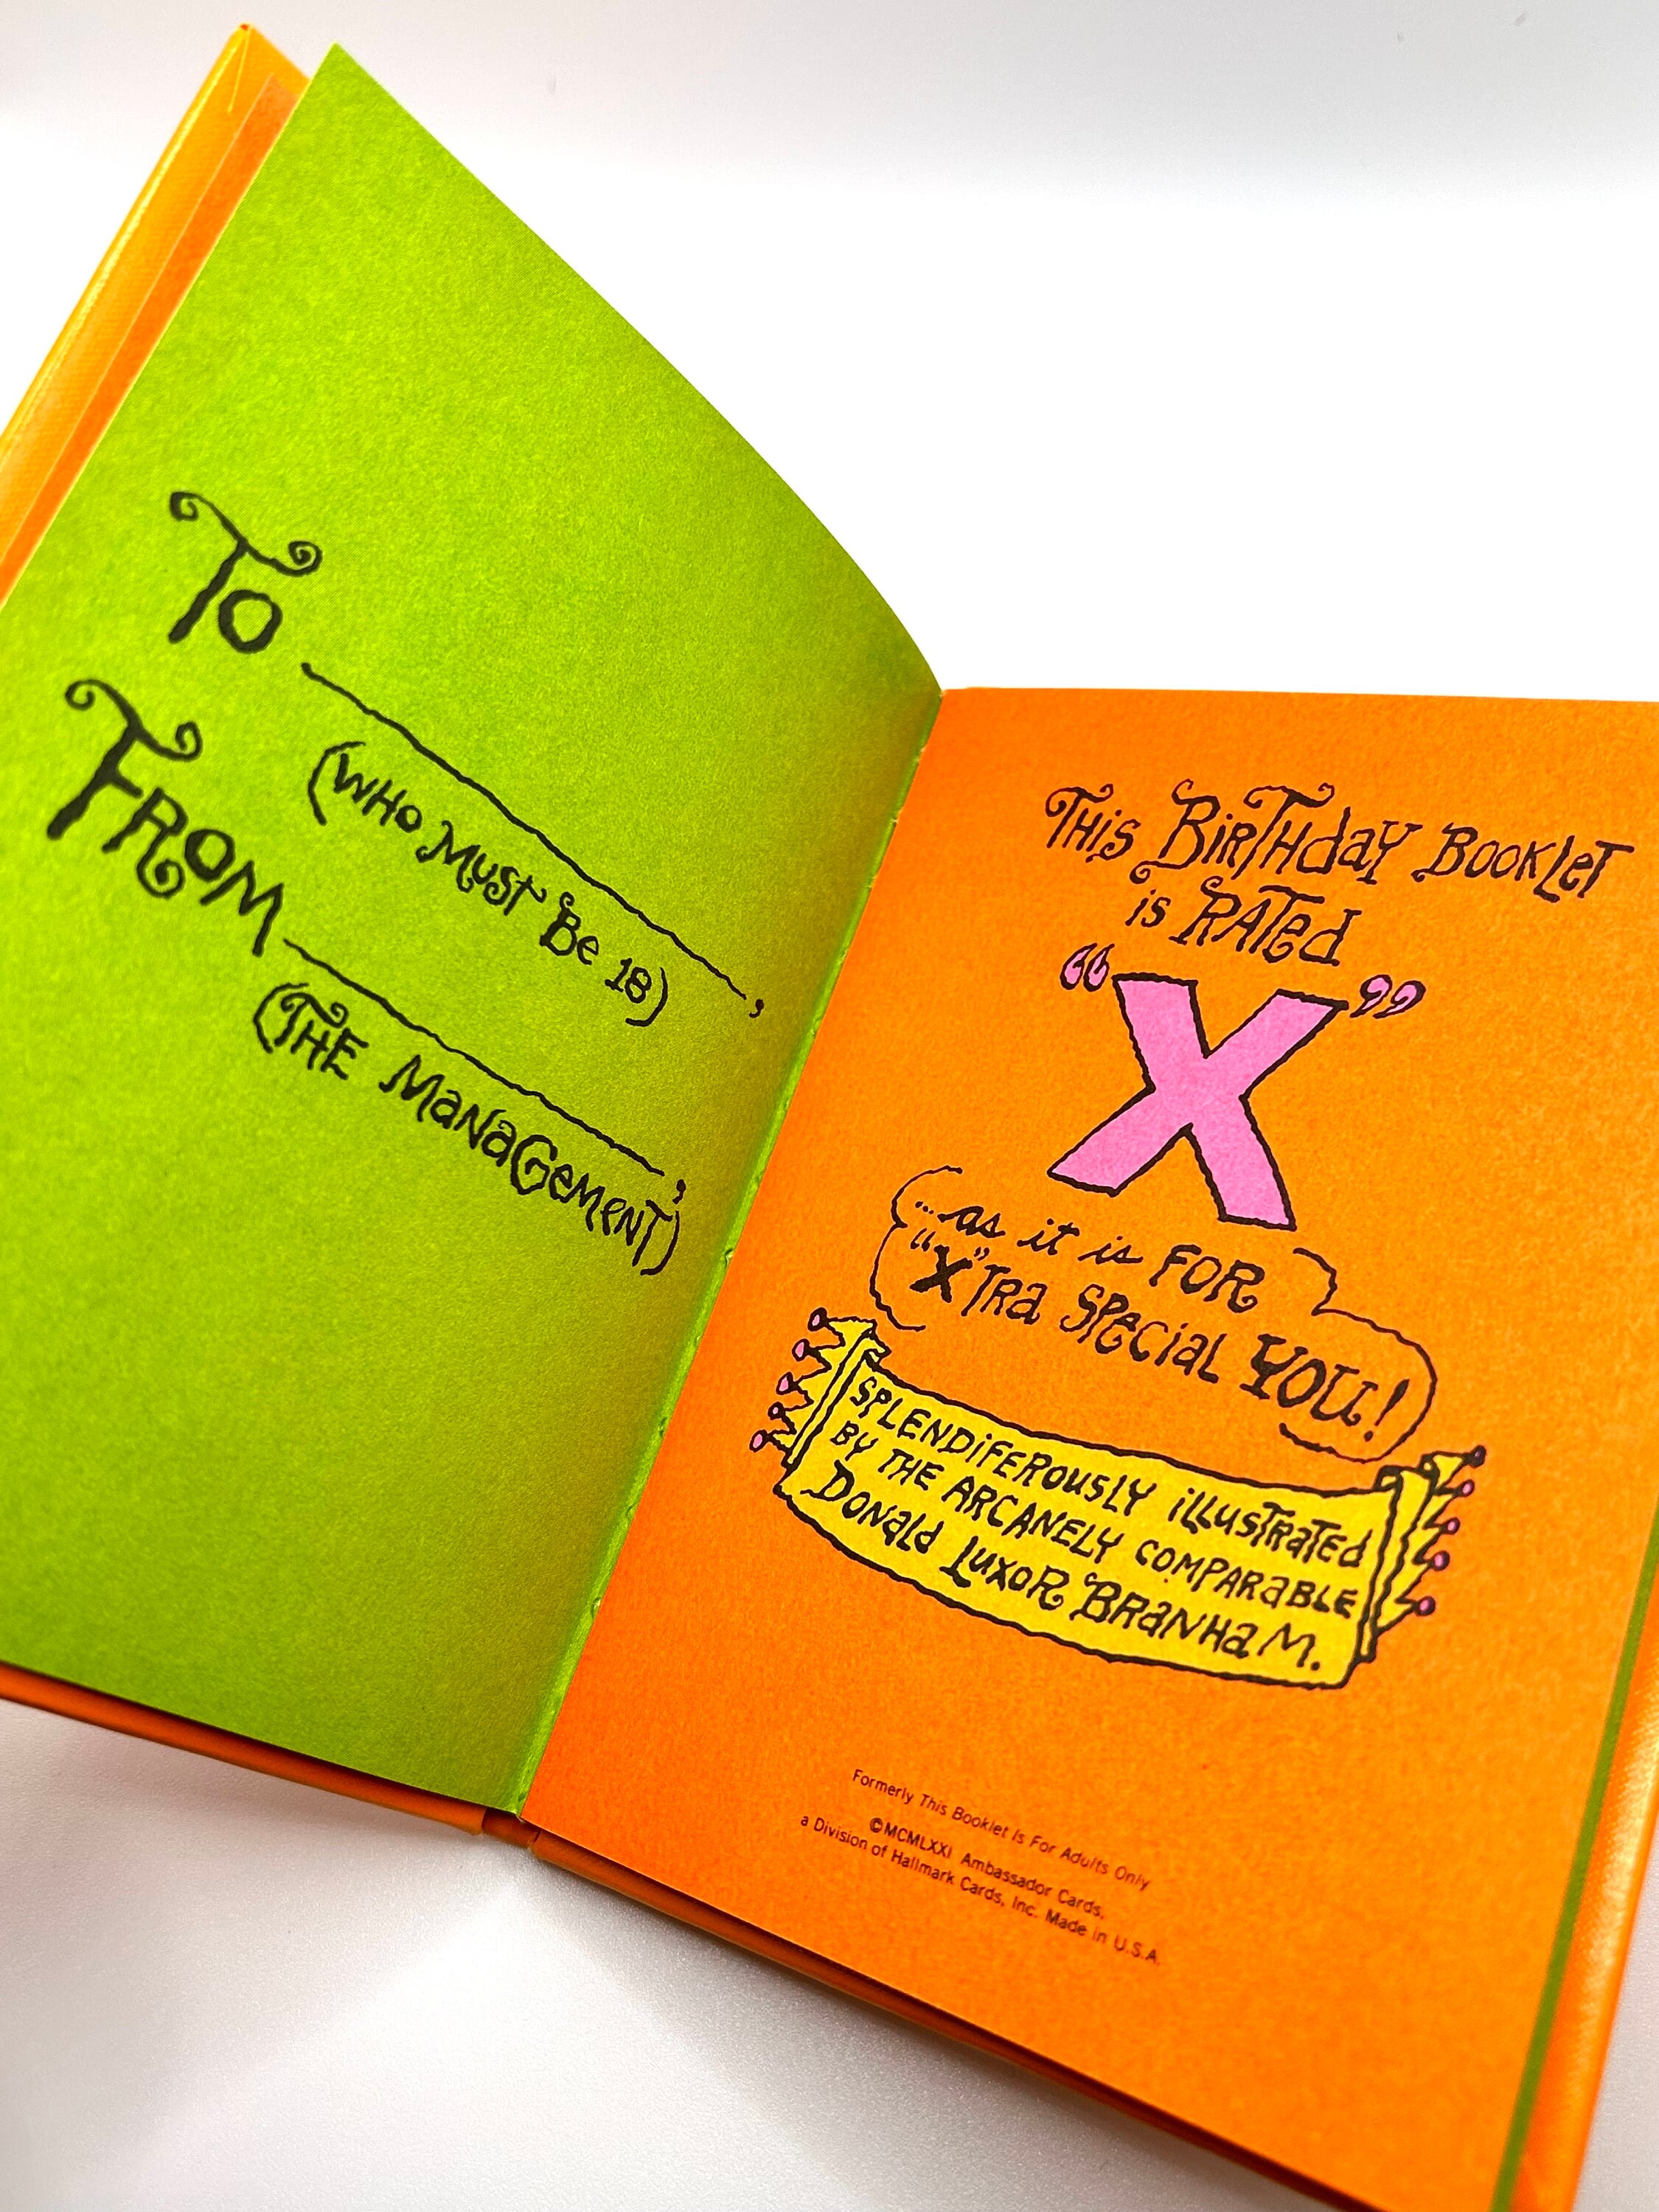 To
(WHO MUST Be 18),
FROM
(THE ManaGement),
THis BirTHdaY BookLeT
is RATed
“X”
...as it is FOR
“X”TRa SPecial YOU!
SPLENDiFEROUSLY iLLUSTRaTEd
BY THE ARCANELY COMPARaBLE
DONald LUXOR BRaNHaM.
Formerly This Booklet Is For Adults Only
©MCMLXXI Ambassador Cards,
a Division of Hallmark Cards, Inc. Made in U.S.A.